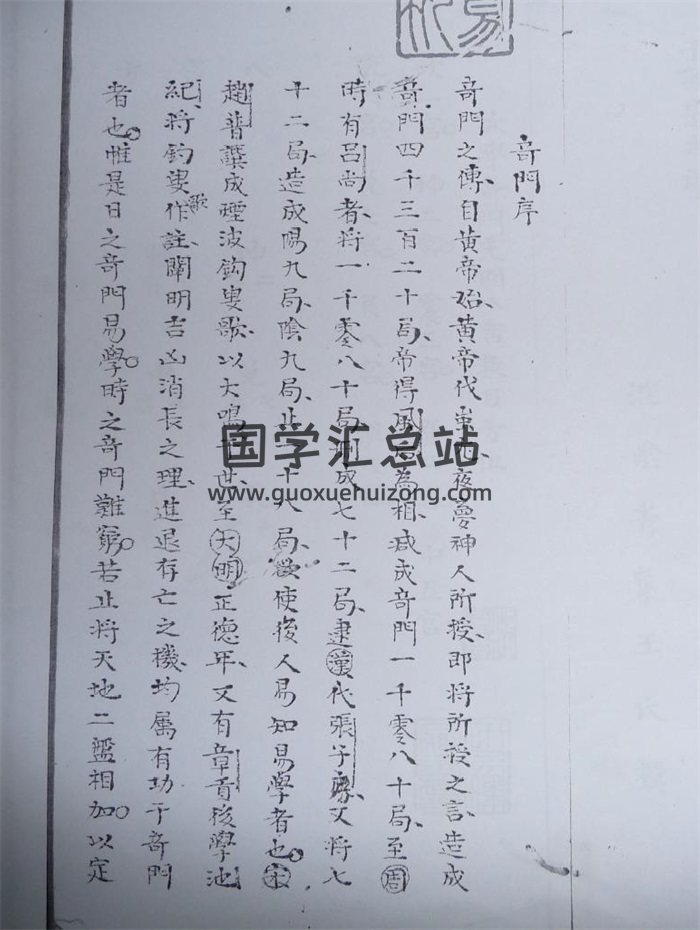 奇門序
奇門之傳自黃帝始黃帝代蚩尤夜夢神人所授即將所授之言造成
奇門四千三百二十局帝得風后為相减成奇門一千零八十局至周
時有呂尚者將一千零八十局刪成七十二局逮漢代張子房又將七
十二局造成陽九局陰九局止一十八局欲使後人易知易學者也宋
趙普譔成煙波鈎叟歌以大鳴于世至大明正德年又有章貢後學池
紀將鈎叟歌作註闡明吉凶消長之理進退存亡之機均属有功于奇門
者也惟是日之奇門易學時之奇門難窮若止將天地二盤相加以定
国学汇总站
www.guoxuehuizong.com